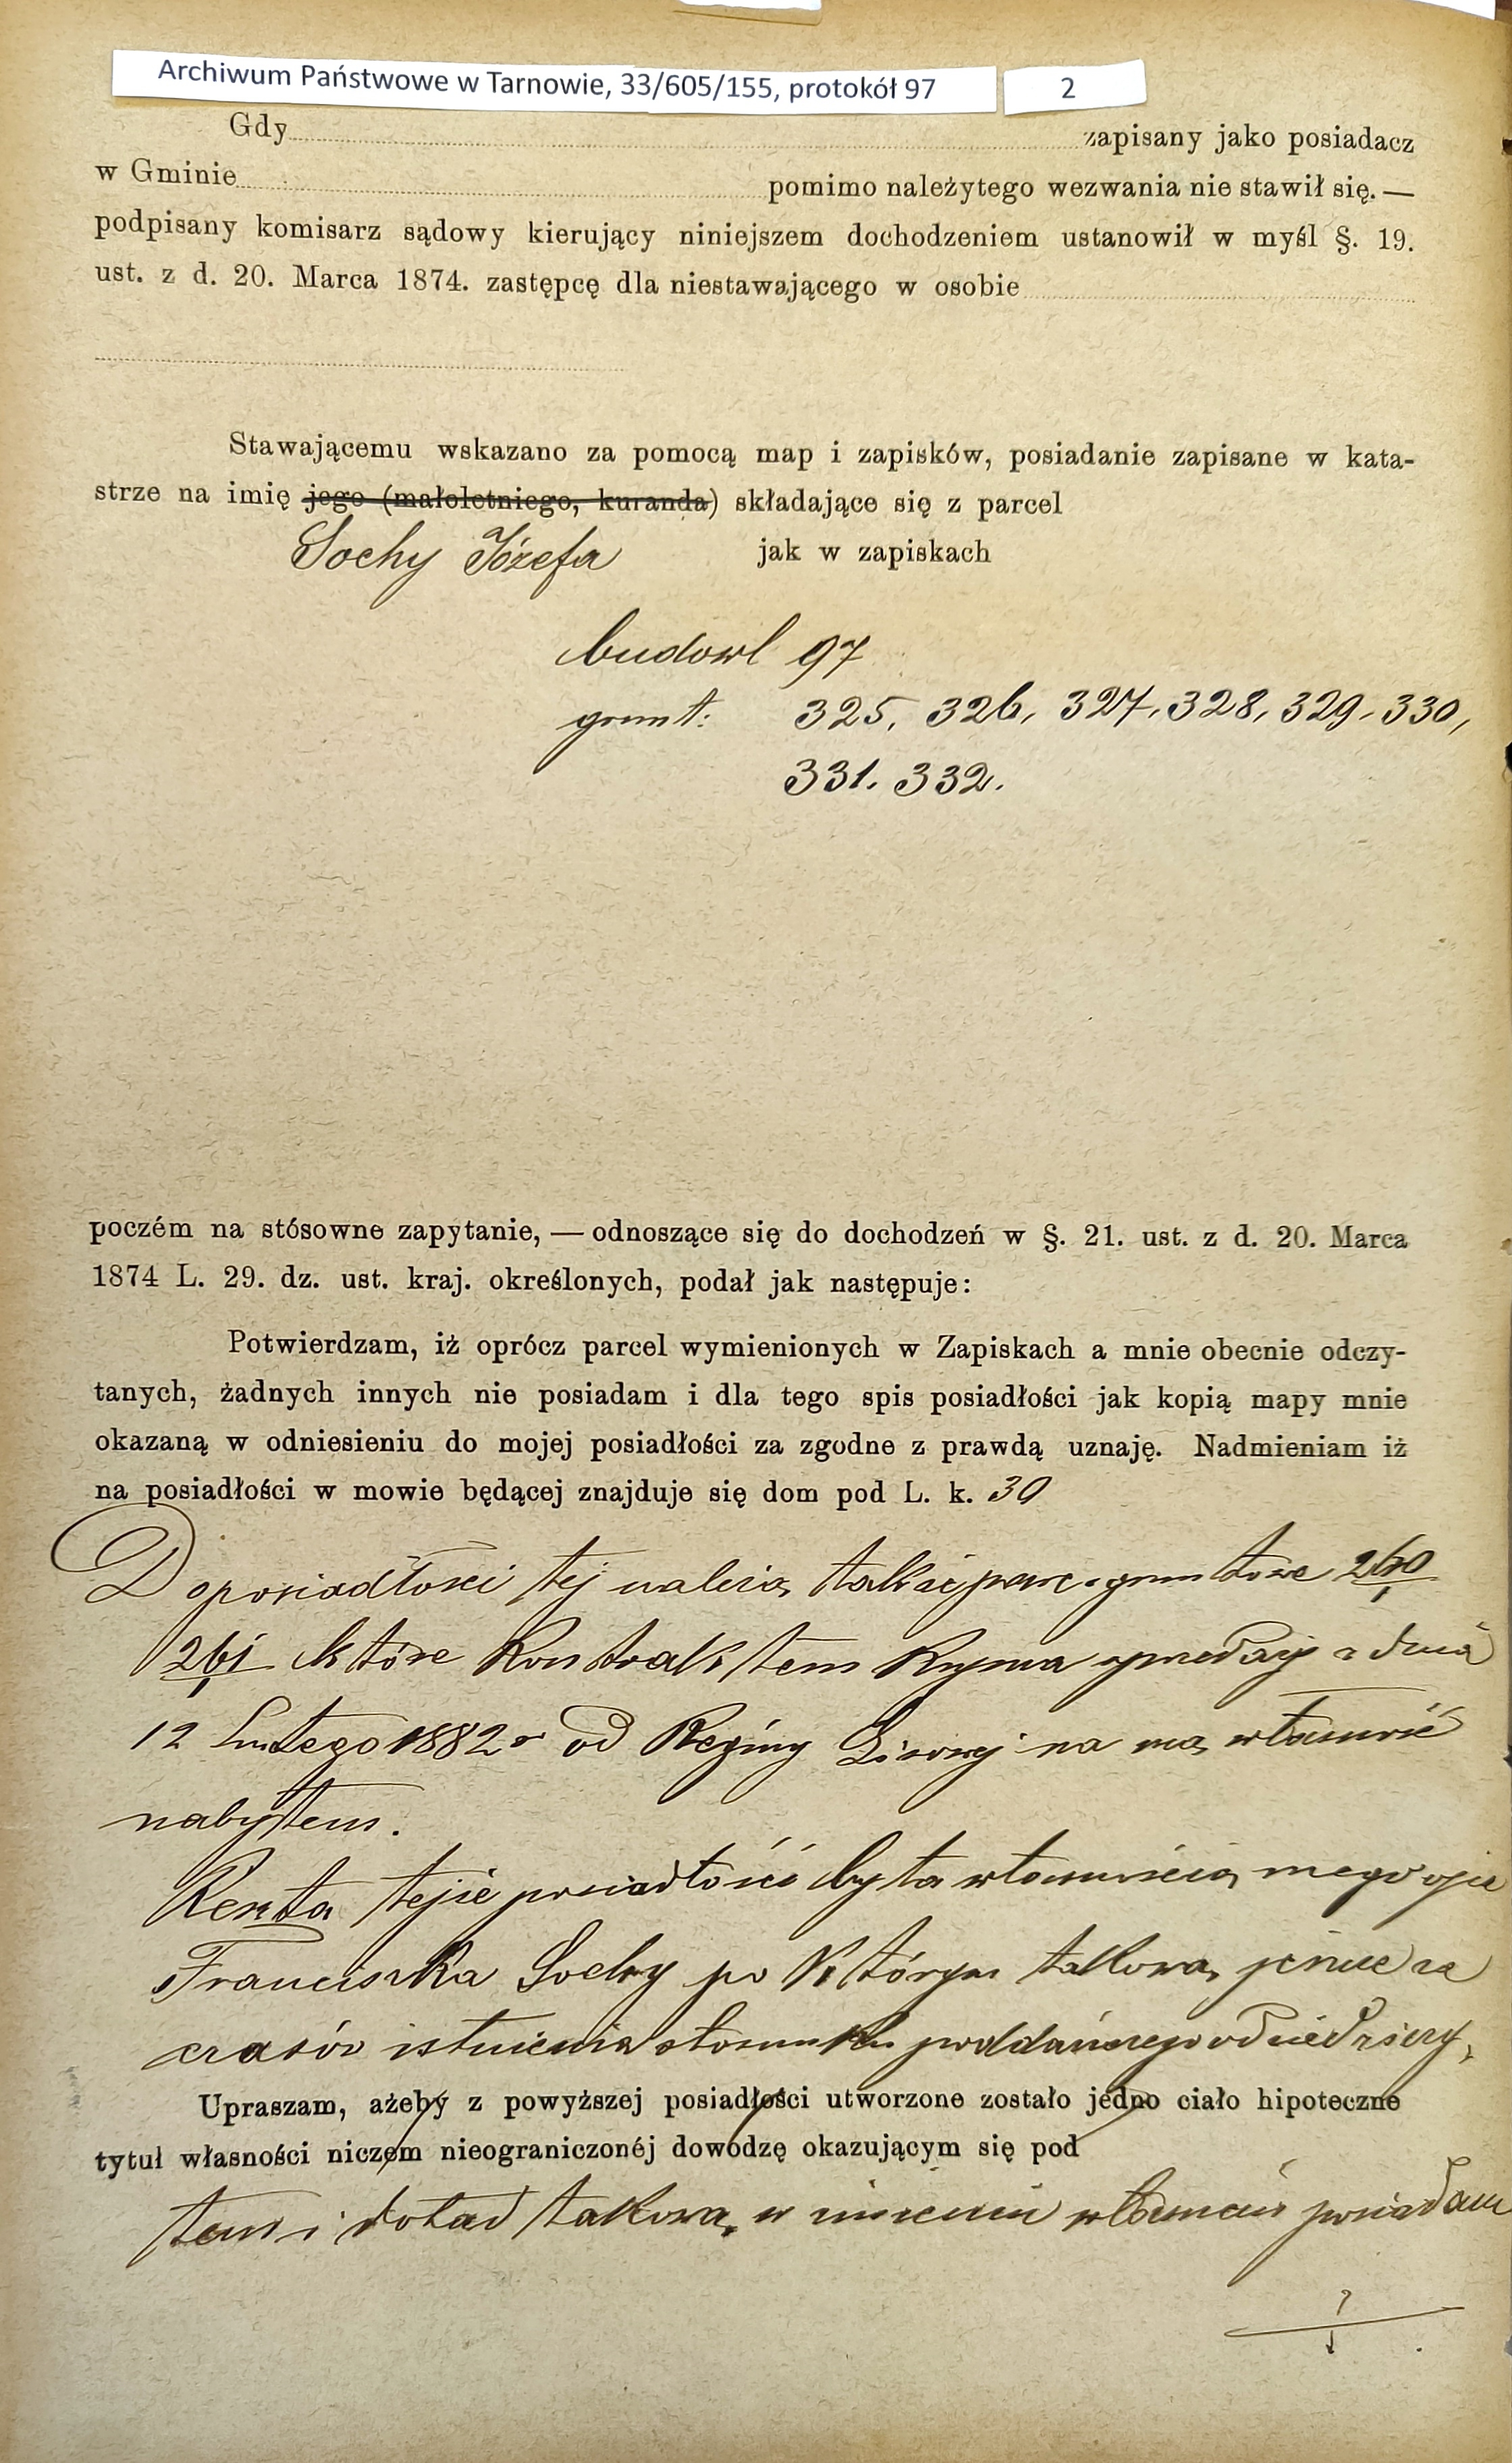 Archiwum Państwowe w Tarnowie, 33/605/155, protokół 97
2
Gdy zapisany jako posiadacz
w Gminie pomimo należytego wezwania nie stawił się. —
podpisany komisarz sądowy kierujący niniejszem dochodzeniem ustanowił w myśl §. 19.
ust. z d. 20. Marca 1874. zastępcę dla niestawającego w osobie
Stawającemu wskazano za pomocą map i zapisków, posiadanie zapisane w kata-
strze na imię jego (małoletniego, kuranda) składające się z parcel
Sochy Józefa jak w zapiskach
budowl 97
grunt: 325, 326, 327, 328, 329, 330,
331. 332.
poczém na stósowne zapytanie, — odnoszące się do dochodzeń w §. 21. ust. z d. 20. Marca
1874 L. 29. dz. ust. kraj. określonych, podał jak następuje:
Potwierdzam, iż oprócz parcel wymienionych w Zapiskach a mnie obecnie odczy-
tanych, żadnych innych nie posiadam i dla tego spis posiadłości jak kopią mapy mnie
okazaną w odniesieniu do mojej posiadłości za zgodne z prawdą uznaję. Nadmieniam iż
na posiadłości w mowie będącej znajduje się dom pod L. k. 30
Do posiadłości tej należą także parc. gruntowe 260/1
261/1 które kontraktem kupna sprzedaży z dnia
12 Lutego 1882 r od Reginy na mą własność
nabyłem.
Reszta tejże posiadłości była własnością mego ojca
Franciszka Sochy po którym takową jeszcze za
czasów istnienia stosunku poddańczego odziedziczy,
Upraszam, ażeby z powyższej posiadłości utworzone zostało jedno ciało hipoteczne
tytuł własności niczem nieograniczonéj dowodzę okazującym się pod
łem i dotąd takową w imieniu własném posiadam